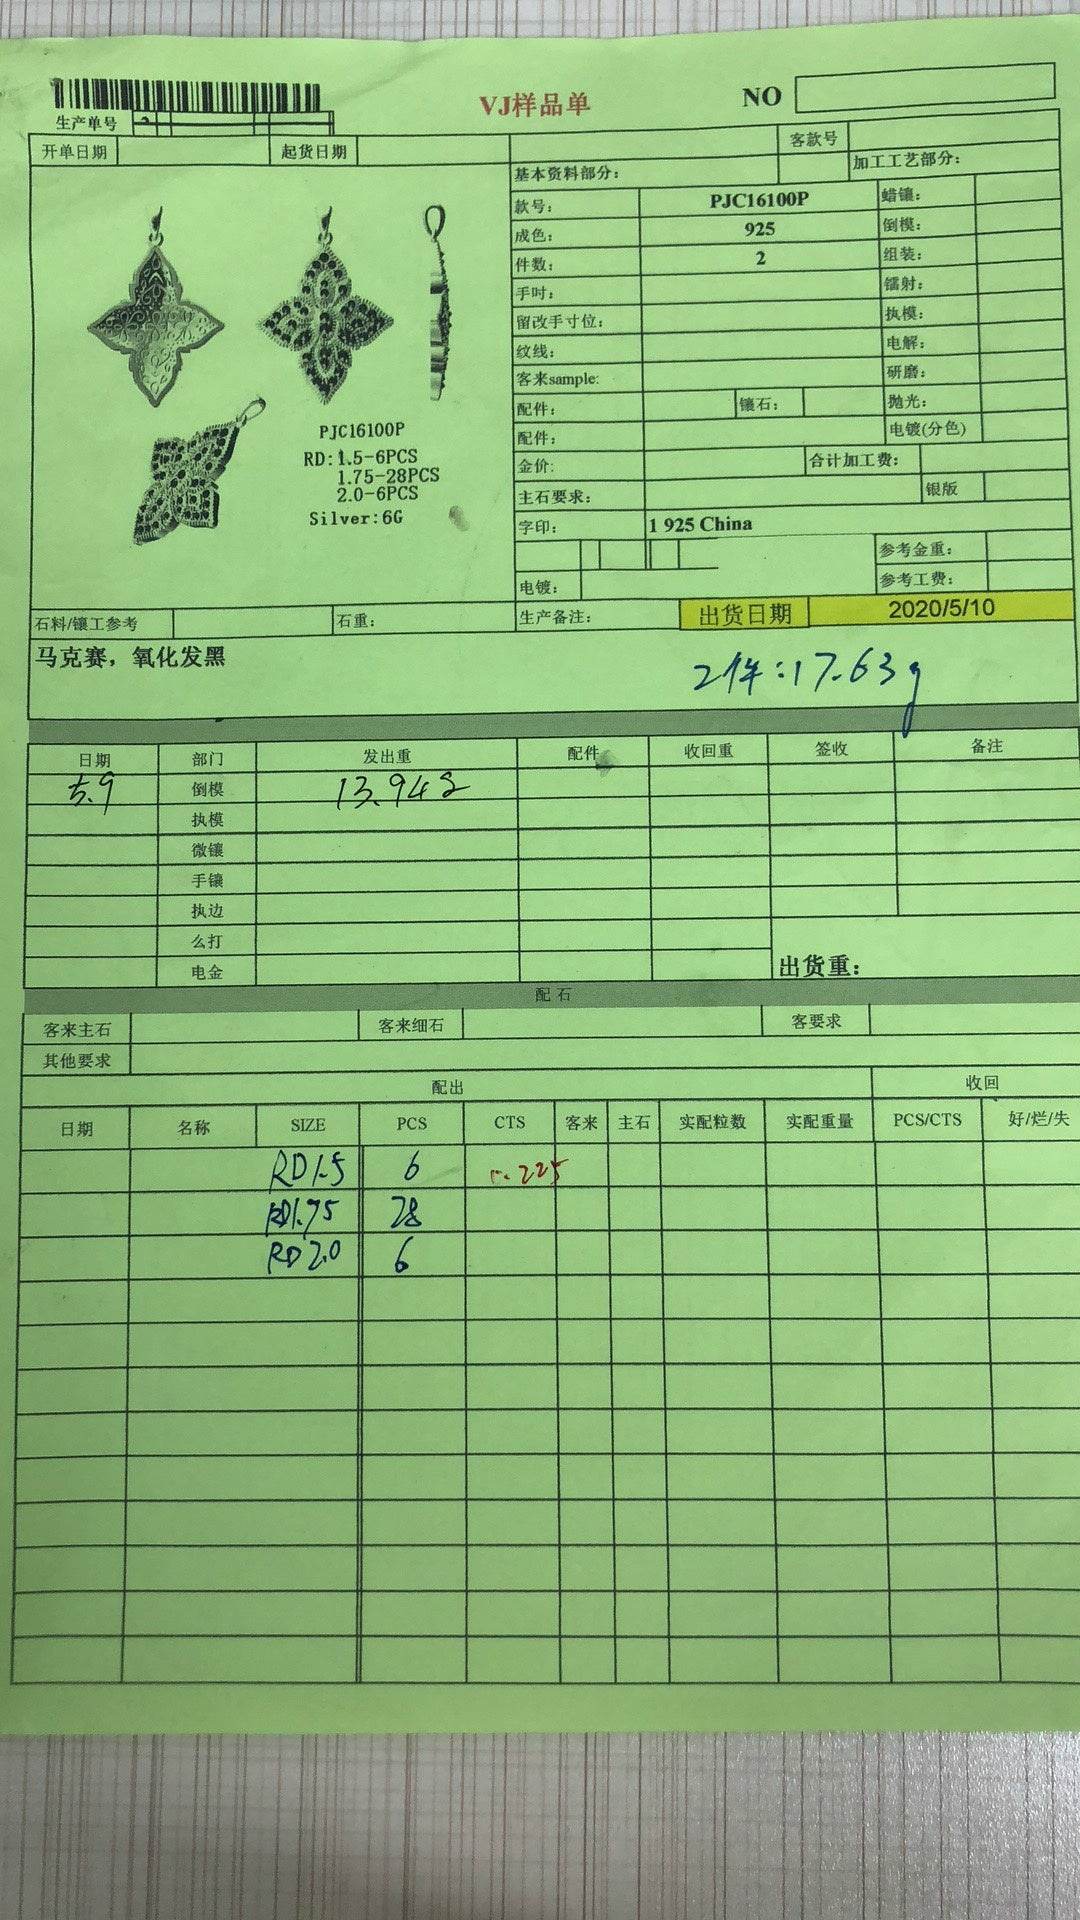 VJ样品单
NO
生产单号
开单日期 起货日期 客款号
基本资料部分: 加工工艺部分:
款号: PJC16100P 蜡镶:
成色: 925 倒模:
件数: 2 组装:
手吋: 镭射:
留改手寸位: 执模:
纹线: 电解:
客来sample: 研磨:
配件: 镶石: 抛光:
配件: 电镀(分色)
金价: 合计加工费:
主石要求: 银版
字印: 1 925 China
参考金重:
电镀: 参考工费:
PJC16100P
RD:1.5-6PCS
1.75-28PCS
2.0-6PCS
Silver:6G
石料/镶工参考 石重: 生产备注: 出货日期 2020/5/10
马克赛，氧化发黑
2件:17.63g
日期 部门 发出重 配件 收回重 签收 备注
5.9 倒模 13.94g
执模
微镶
手镶
执边
么打
电金
出货重:
配石
客来主石 客来细石 客要求
其他要求
配出 收回
日期 名称 SIZE PCS CTS 客来 主石 实配粒数 实配重量 PCS/CTS 好/烂/失
RD1.5 6
RD1.75 28
RD2.0 6